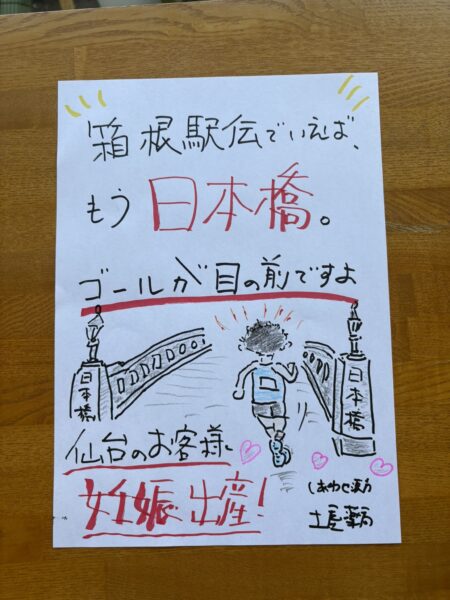 箱根駅伝でいえば、
もう日本橋。
ゴールが目の前ですよ
日本橋
日本橋
仙台のお客様
妊娠出産!
しあわせ薬局
土屋薬局